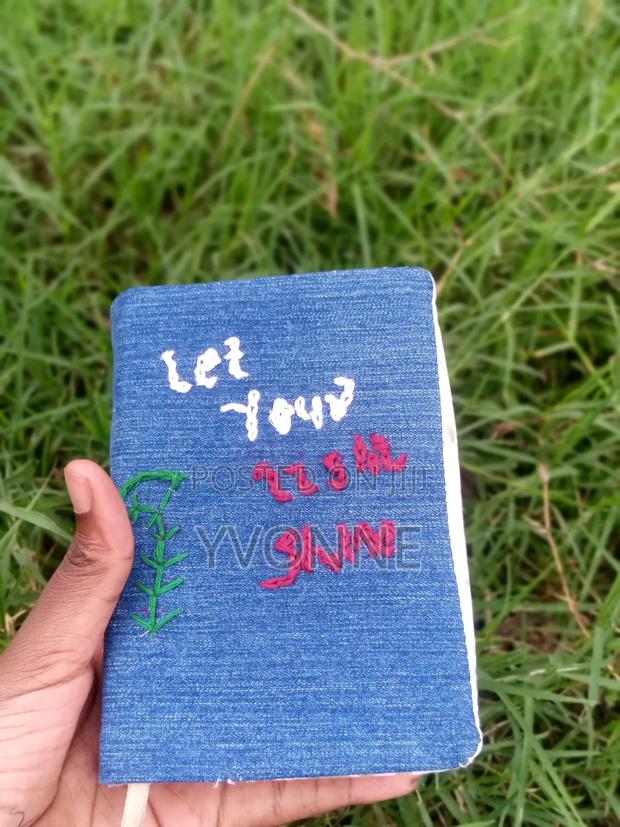 Let
Your
Light
POSTED ON JIJI
Shine
YVONNE